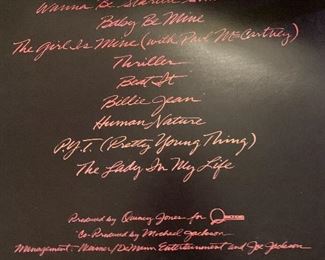 Wanna Be Startin'
Baby Be Mine
The Girl Is Mine (with Paul McCartney)
Thriller
Beat It
Billie Jean
Human Nature
P.Y.T. (Pretty Young Thing)
The Lady In My Life
Produced by Quincy Jones for
Co-Produced by Michael Jackson
Management: Weisner/DeMann Entertainment and Joe Jackson